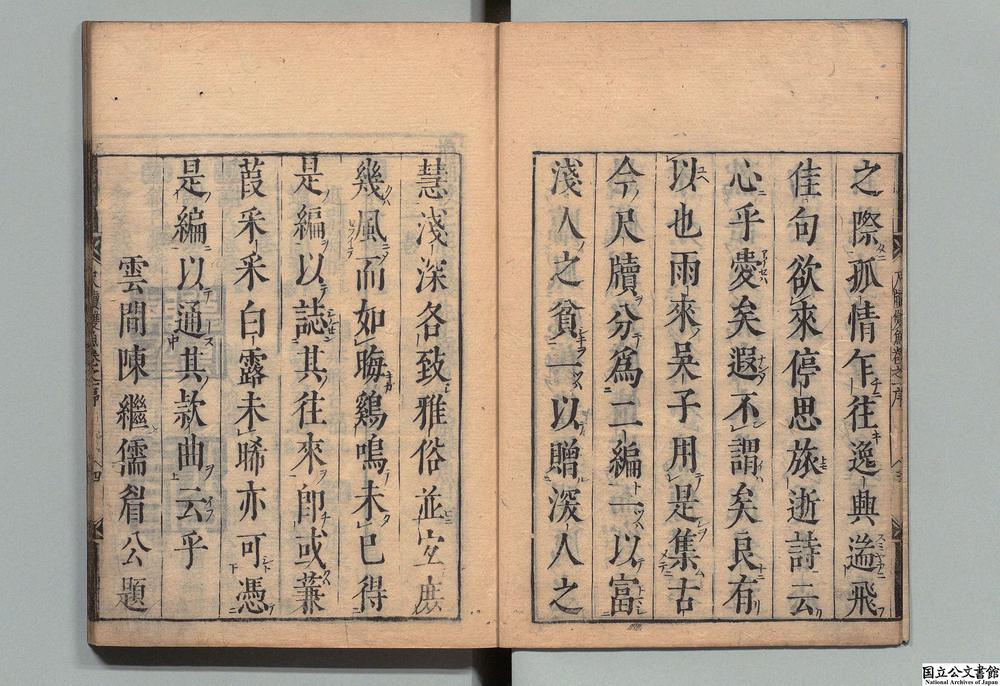 之際孤情乍往逸興遄飛
佳句欲來停思旅逝詩云
心乎愛矣遐不謂矣良有
以也雨來吳子用是集古
今尺牘分爲二編一以富
淺人之貧一以贈深人之
慧淺深各致雅俗並宐庶
幾風而如晦鷄鳴未已得
是編以誌其往來卽或蒹
葭釆釆白露未晞亦可憑
是編以通其款曲云乎
雲間陳繼儒眉公題
国立公文書館
National Archives of Japan